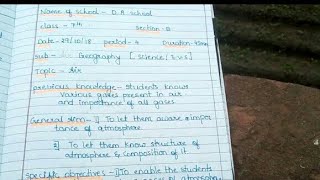 Name of school - D.A school
class - 7th section - B
Date - 29/10/18 period - 4 Duration - 45min
sub - Geography [science/s.w.s]
Topic - Air
previous knowledge - students knows
various gases present in air
and importance of all gases
General Aim - 1) To let them aware impor
tance of atmosphere
2) To let them know structure of
atmosphere & composition of it
specific objectives - 1) To enable the students
gases of atmosph